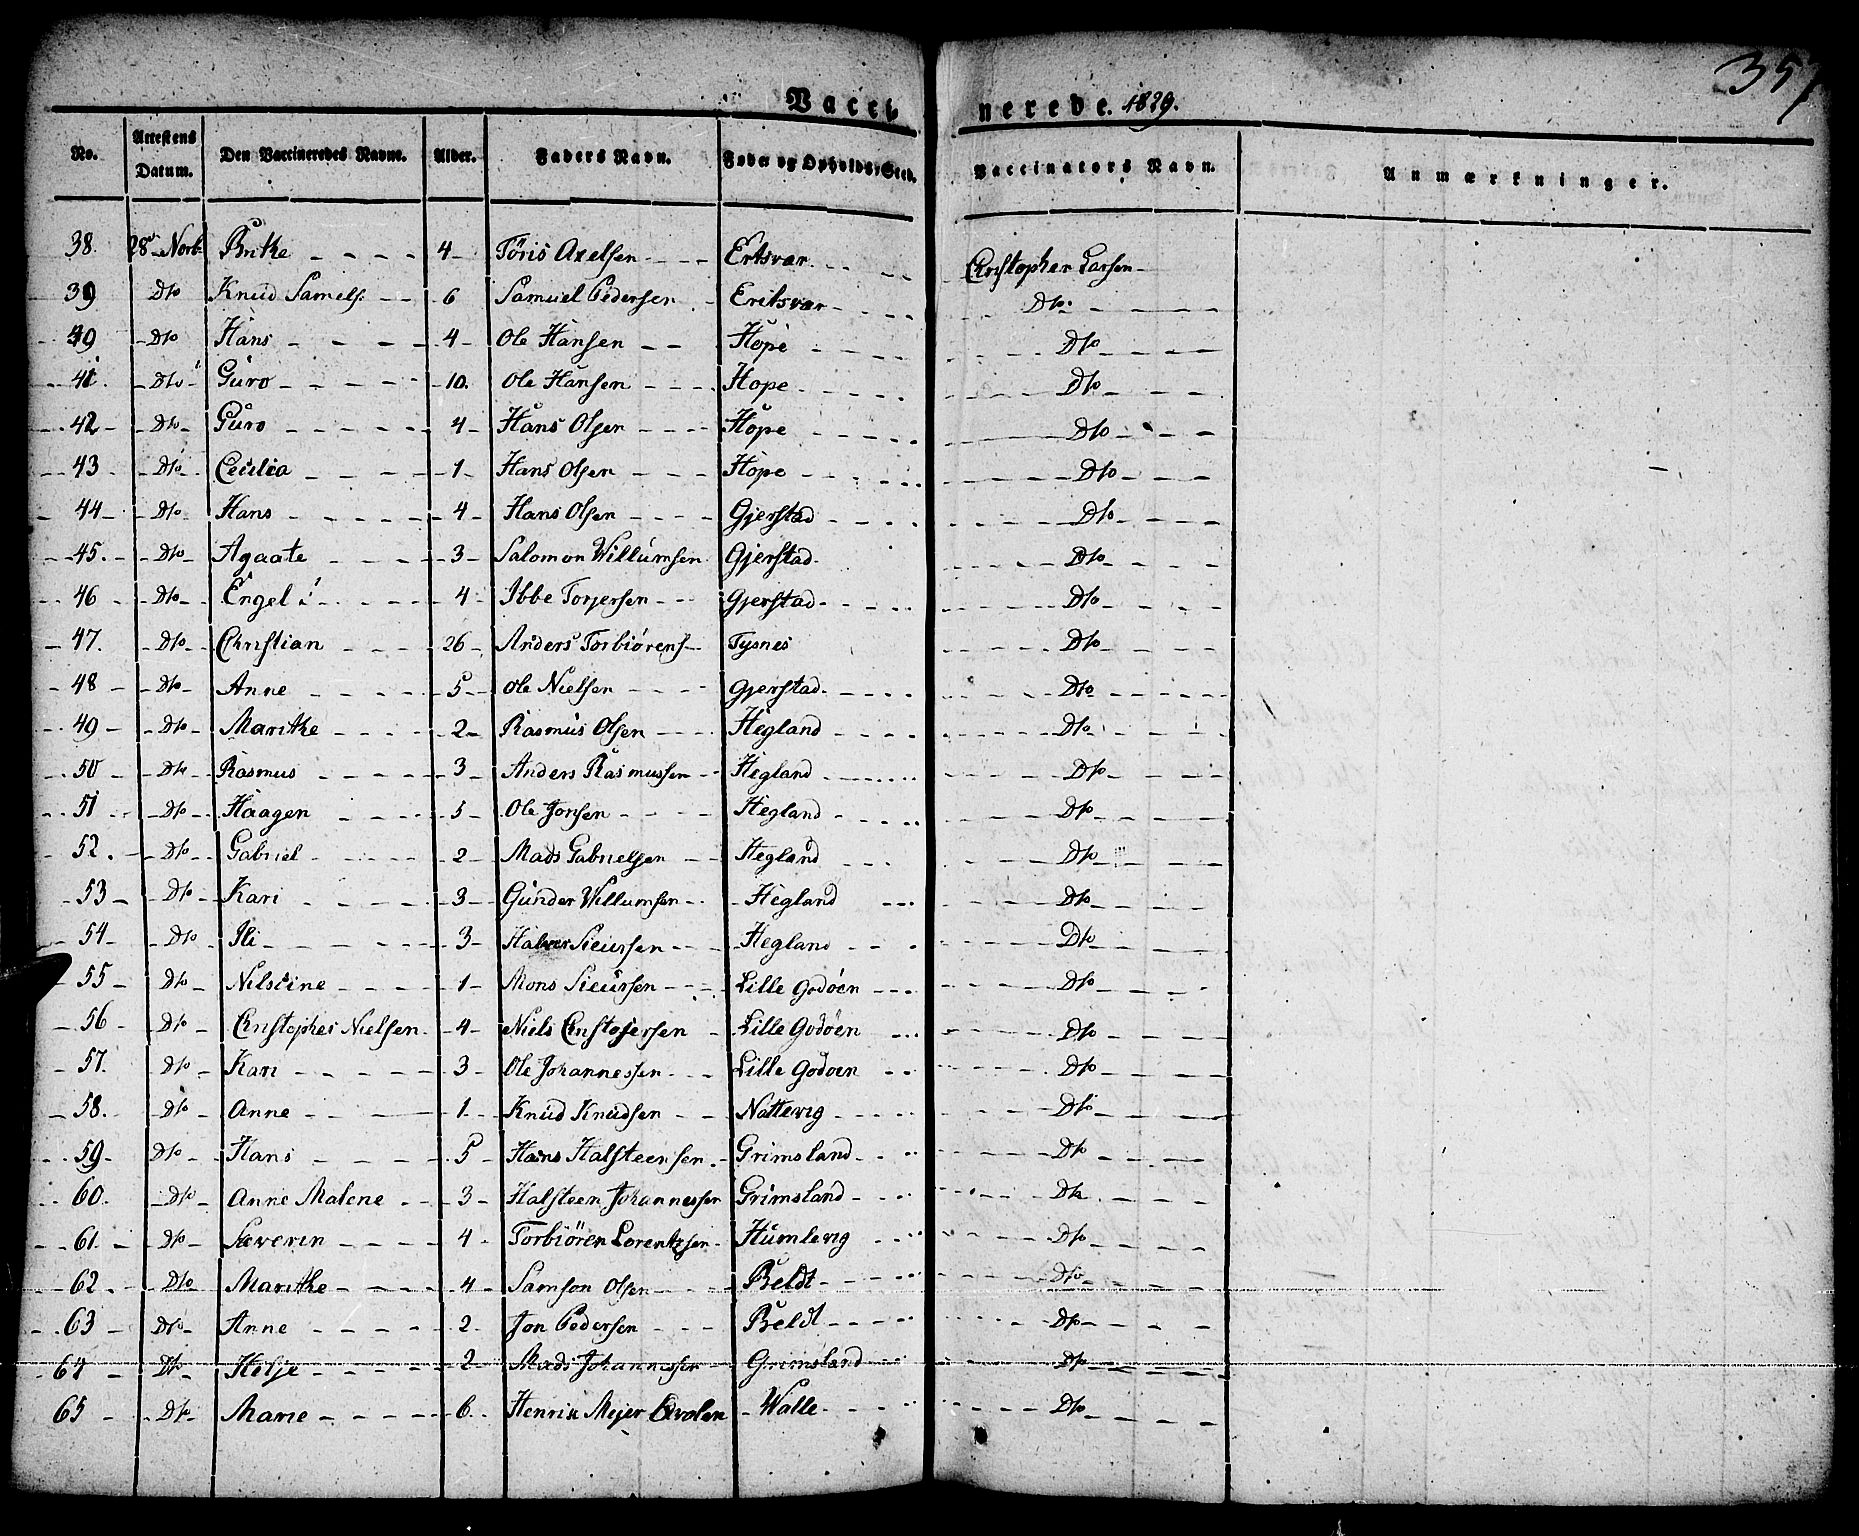 357
Vacci nerede. 1829.
No. Attestens Datum. Den Vaccineredes Navne. Alder. Faders Navn. Føde og Opholds-Sted. Vaccinators Navn. Anmærkninger.
38. 28 Novb Birthe 4 Töris Axelsen Ertsvar Christopher Larsen
39 Dto Knud Samuels 6 Samuel Pedersen Eritsvær Dto
40 Dto Hans 4 Ole Hansen Hope Dto
41. Dto Guro 10. Ole Hansen Hope Dto
42 Dto Guro 4 Hans Olsen Hope Dto
43 Dto Cecilia 1 Hans Olsen Hope Dto
44 Dto Hans 4 Hans Olsen Gjerstad Dto
45. Dto Agaate 3 Salomon Willumsen Gjerstad Dto
46 Dto Engel 4 Ibbe Torjersen Gjerstad Dto
47. Dto Christian 26 Anders Torbiörens Tysnes Dto
48 Dto Anne 5 Ole Nielsen Gjerstad Dto
49 Dto Marithe 2 Rasmus Olsen Hegland Dto
50 Dto Rasmus 3 Anders Rasmussen Hegland Dto
51 Dto Haagen 5 Ole Jonsen Hegland Dto
52. Dto Gabriel 2 Mads Gabrielsen Hegland Dto
53 Dto Kari 3 Gunder Willumsen Hegland Dto
54 Dto Ili 3 Halvor Sieursen Hegland Dto
55 Dto Nilstine 1 Mons Sieursen Lille Godöen Dto
56 Dto Christopher Nielsen 4 Niels Christofersen Lille Godöen Dto
57. Dto Kari 3 Ole Johannessen Lille Godöen Dto
58. Dto Anne 1 Knud Knudsen Nattevig Dto
59 Dto Hans 5 Hans Halsteensen Grimsland Dto
60. Dto Anne Malene 3 Halsteen Johannessen Grimsland Dto
61. Dto Severin 4 Torbiören Lorentzsen Humlevig Dto
62 Dto Marithe 4 Samson Olsen Beldt Dto
63 Dto Anne 2 Jon Pedersen Beldt Dto
64 Dto Helje 2 Mads Johannessen Grimsland Dto
65 Dto Marie 6 Henrik Mejer Walle Dto